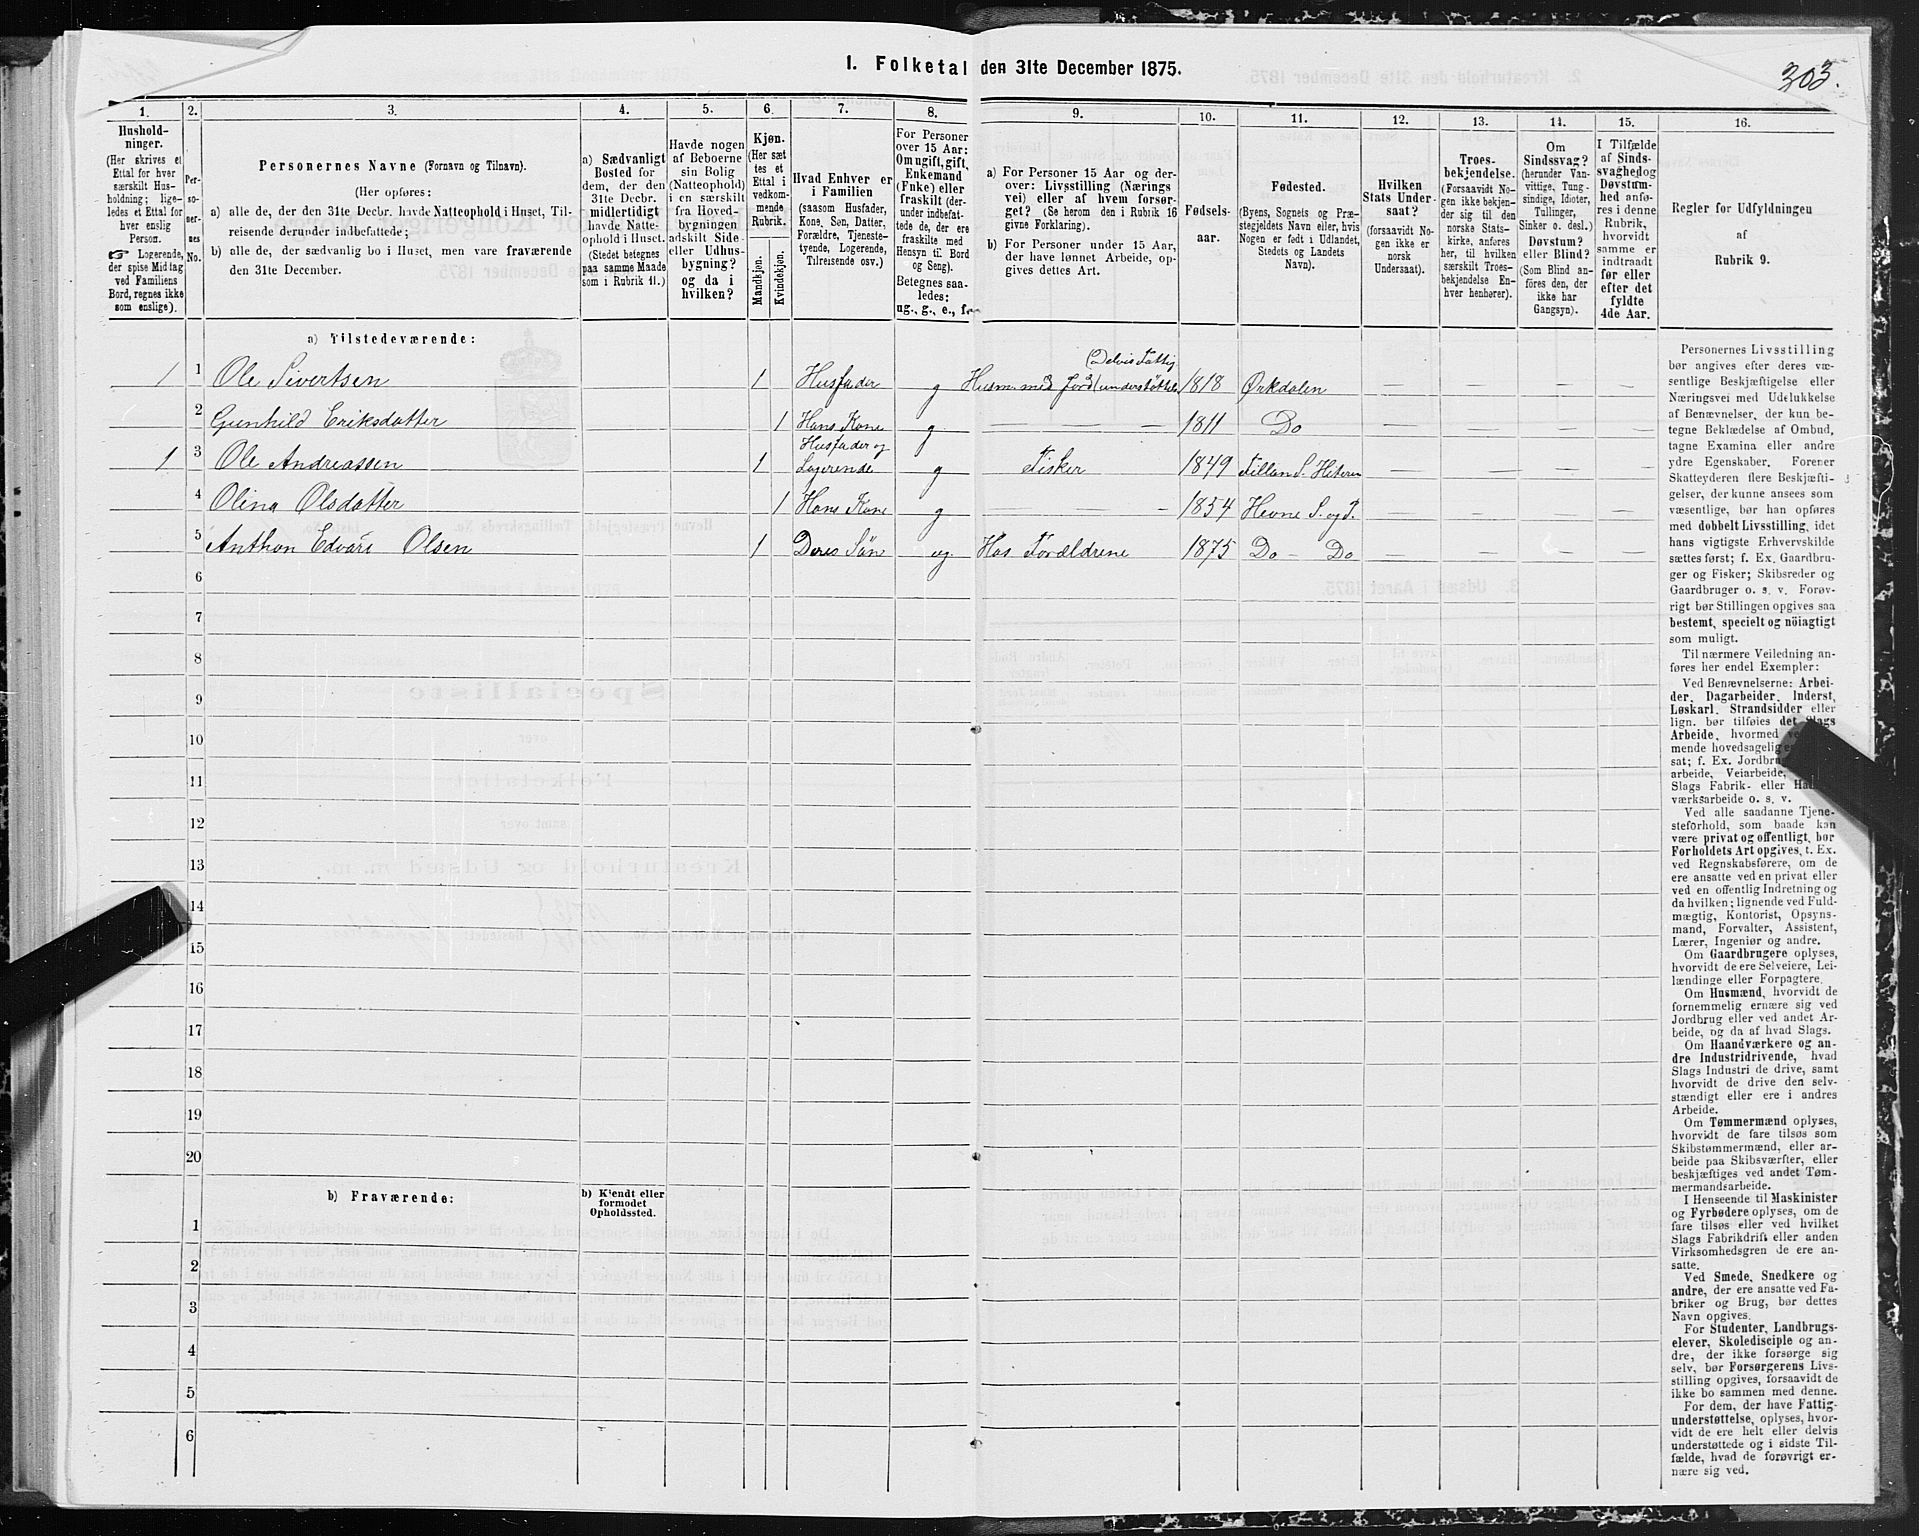 1. Folketal den 31te December 1875.
303.
1. 2. 3. 4. 5. 6. 7. 8. 9. 10. 11. 12. 13. 14. 15. 16.
Hushold-
ninger.
(Her skrives et
Ettal for hver
særskilt Hus-
holdning; lige-
ledes et Ettal for
hver enslig
Person.
☞ Logerende,
der spise Middag
ved Familiens
Bord, regnes ikke
som enslige).
Per-
so-
ner-
nes
No.
Personernes Navne (Fornavn og Tilnavn).
(Her opføres:
a) alle de, der den 31te Decbr. havde Natteophold i Huset, Til-
reisende derunder indbefattede;
b) alle de, der sædvanlig bo i Huset, men vare fraværende
den 31te December.
a) Sædvanligt
Bosted for
dem, der den
31te Decbr.
midlertidigt
havde Natte-
ophold i Huset.
(Stedet betegnes
paa samme Maade
som i Rubrik 11.)
Havde nogen
af Beboerne
sin Bolig
(Natteophold)
i en særskilt
fra Hoved-
bygningen
adskilt Side-
eller Udhus-
bygning?
og da i
hvilken?
Kjøn.
(Her sæt-
tes et
Ettal i
vedkom-
mende
Rubrik.
Mandkjøn.
Kvindekjøn.
Hvad Enhver er
i Familien
(saasom Husfader,
Kone, Søn, Datter,
Forældre, Tjeneste-
tyende, Logerende,
Tilreisende osv.)
For Personer
over 15 Aar:
Om ugift, gift,
Enkemand
(Enke) eller
fraskilt (der-
under indbefat-
tede de, der ere
fraskilte med
Hensyn til Bord
og Seng).
Betegnes saa-
ledes:
ug., g., e., f.
a) For Personer 15 Aar og der-
over: Livsstilling (Nærings
vei) eller af hvem forsør-
get? (Se herom den i Rubrik 16
givne Forklaring).
b) For Personer under 15 Aar,
der have lønnet Arbeide, op-
gives dettes Art.
Fødsels-
aar.
Fødested.
(Byens, Sognets og Præ-
stegjeldets Navn eller, hvis
Nogen er født i Udlandet,
Stedets og Landets
Navn).
Hvilken
Stats Under-
saat?
(forsaavidt No-
gen ikke er
norsk
Undersaat).
Troes-
bekjendelse.
(Forsaavidt No-
gen ikke bekjen-
der sig til den
norske Stats-
kirke, anføres
her, til hvilken
særskilt Troes-
bekjendelse En-
hver henhører).
Om
Sindssvag?
(herunder Van-
vittige, Tung-
sindige, Idioter,
Tullinger,
Sinker o. desl.)
Døvstum?
eller Blind?
(Som Blind an-
føres den, der
ikke har
Gangsyn).
I Tilfælde
af Sinds-
svaghed og
Døvstum-
hed anfø-
res i denne
Rubrik,
hvorvidt
samme er
indtraadt
før eller
efter det
fyldte
4de Aar.
Regler for Udfyldningen
af
Rubrik 9.
a) Tilstedeværende:
1 1 Ole Sivertsen 1 Husfader g Husm. med Jord (Delvis Fattig understøttet 1818 Ørkdalen — — — —
2 Gunhild Eriksdatter 1 Hans Kone g — — — 1811 Do — — — —
1 3 Ole Andreassen 1 Husfader og Logerende g Fisker 1849 Fillan S. Hiteren — — — —
4 Olina Olsdatter 1 Hans Kone g — — — 1854 Hevne S. og P. — — — —
5 Anthon Edvart Olsen 1 Deres Søn ug. Hos Forældrene 1875 Do — Do — — — —
6
7
8
9
10
11
12
13
14
15
16
17
18
19
20
b) Fraværende:
b) Kjendt eller
formodet
Opholdssted.
1
2
3
4
5
6
Personernes Livsstilling
bør angives efter deres væ-
sentlige Beskjæftigelse eller
Næringsvei med Udelukkelse
af Benævnelser, der kun be-
tegne Beklædelse af Ombud,
tagne Examina eller andre
ydre Egenskaber. Forener
Skatteyderen flere Beskjæfti-
gelser, der kunne ansees som
væsentlige, bør han opføres
med dobbelt Livsstilling, idet
hans vigtigste Erhvervskilde
sættes først; f. Ex. Gaardbru-
ger og Fisker; Skibsreder og
Gaardbruger o. s. v. Forøv-
rigt bør Stillingen opgives saa
bestemt, specielt og nöiagtigt
som muligt.
Til nærmere Veiledning an-
føres her endel Exempler:
Ved Benævnelserne: Arbei-
der, Dagarbeider, Inderst,
Løskarl, Strandsidder eller
lign. bør tilføies det Slags
Arbeide, hvormed
mende hovedsagelig
sat; f. Ex.
arbeide, Veiarbeide,
Slags Fabrik- eller
værksarbeide o. s. v.
Ved alle saadanne Tjene-
steforhold, som baade kan
være privat og offentligt, bør
Forholdets Art opgives, t. Ex.
ved Regnskabsførere, om de
ere ansatte ved en privat eller
ved en offentlig Indretning og
da hvilken; lignende ved Fuld-
mægtig, Kontorist, Opsyns-
mand, Forvalter, Assistent,
Lærer, Ingeniør og andre.
Om Gaardbrugere oplyses,
hvorvidt de ere Selveiere, Lei-
lændinge eller Forpagtere.
Om Husmænd, hvorvidt de
fornemmelig ernære sig ved
Jordbrug eller ved andet Ar-
beide, og da af hvad Slags.
Om Haandværkere og an-
dre Industridrivende, hvad
Slags Industri de drive, samt
hvorvidt de drive den selv-
stændigt eller ere i andres
Arbeide.
Om Tømmermænd oplyses,
hvorvidt de fare tilsøs som
Skibstømmermænd, eller ar-
beide paa Skibsværfter, eller
beskjæftiges ved andet Tøm-
mermandsarbeide.
I Henseende til Maskinister
og Fyrbødere oplyses, om de
fare tilsøs eller ved hvilket
Slags Fabrikdrift eller anden
Virksomhedsgren de ere an-
satte.
Ved Smede, Snedkere og
andre, der ere ansatte ved Fa-
briker og Brug, bør dettes
Navn opgives.
For Studenter, Landbrugs-
elever, Skoledisciple og an-
dre, der ikke forsørge sig
selv, bør Forsørgerens Livs-
stilling opgives, forsaavidt de
ikke bo sammen med denne.
For dem, der have Fattig-
understøttelse, oplyses, hvor-
vidt de ere helt eller delvis
understøttede og i sidste Til-
fælde, hvad de forøvrigt er-
nære sig ved.